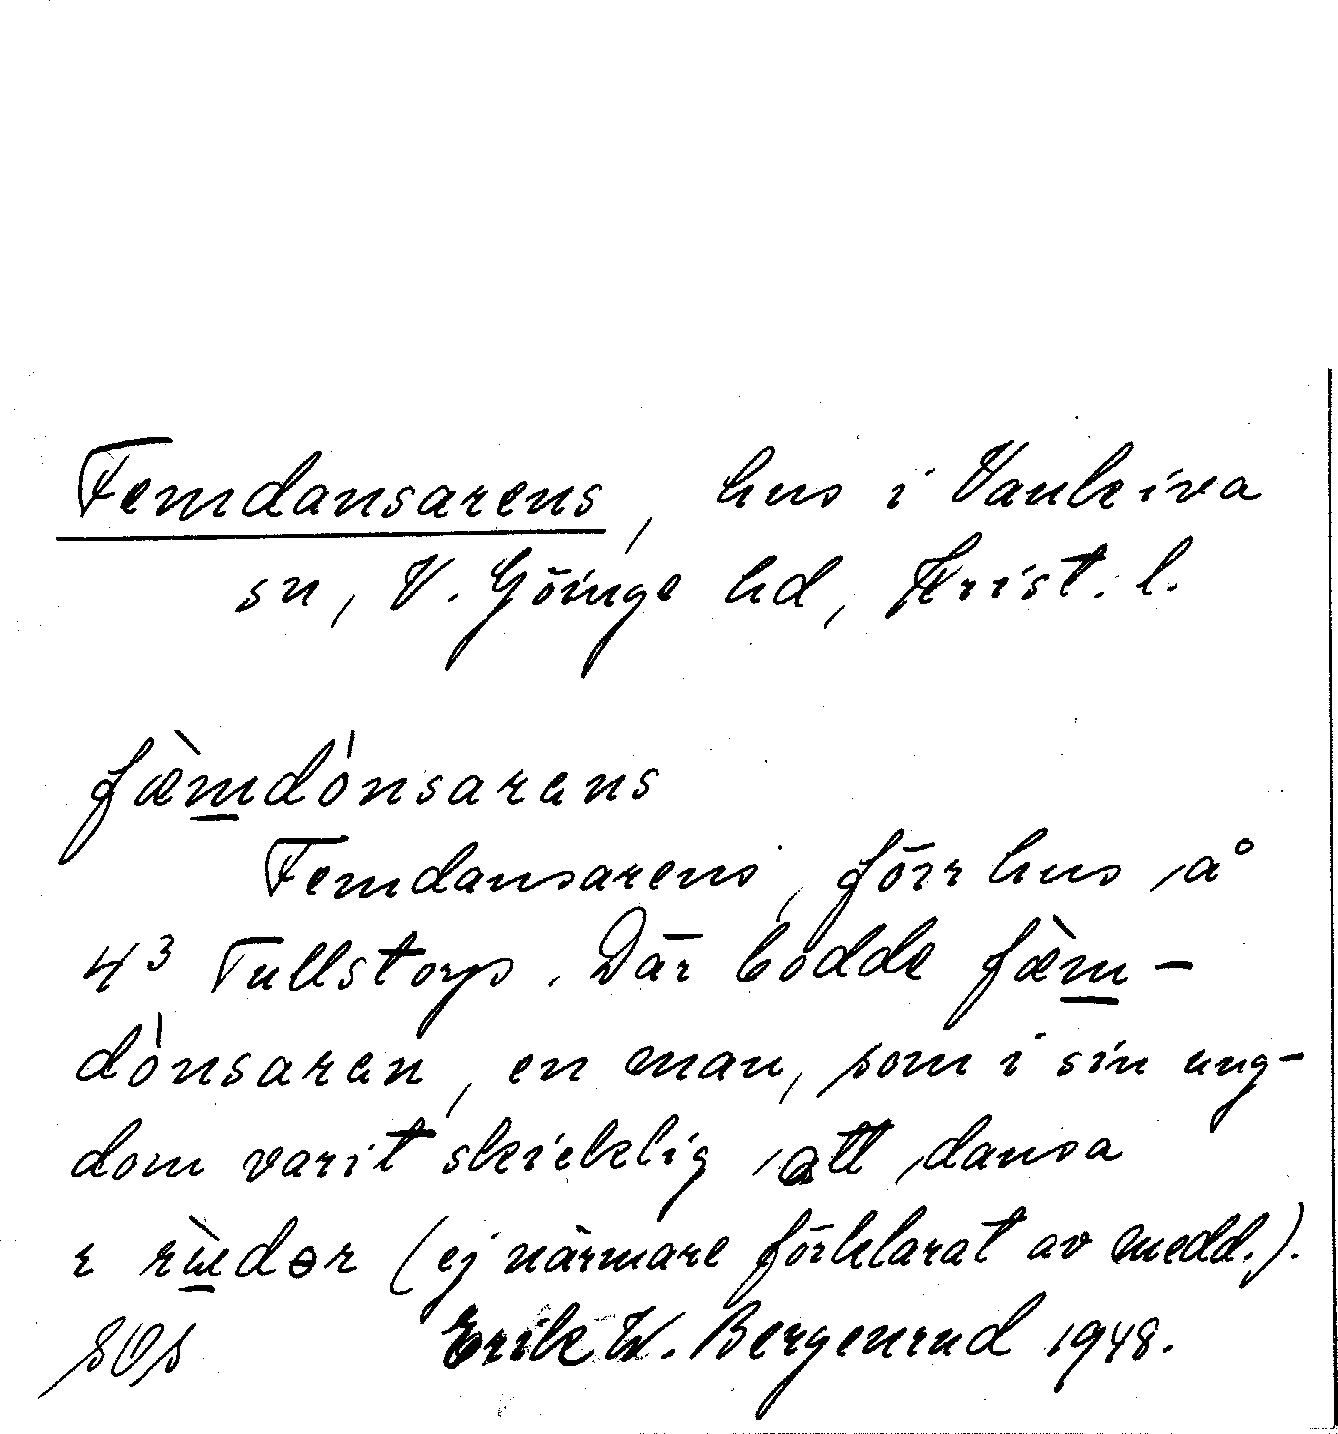 Femdansarens, hus i Vankiva
sn, V. Göinge hd, Krist. l.
fæ̀mdónsarens
Femdansarens, förr hus å
4³ Tullstorp. Där bodde fæ̀m-
dónsaren, en man, som i sin ung-
dom varit skicklig att dansa
(ej närmare förklarat av medd.).
Erik W. Bergenrud 1948.